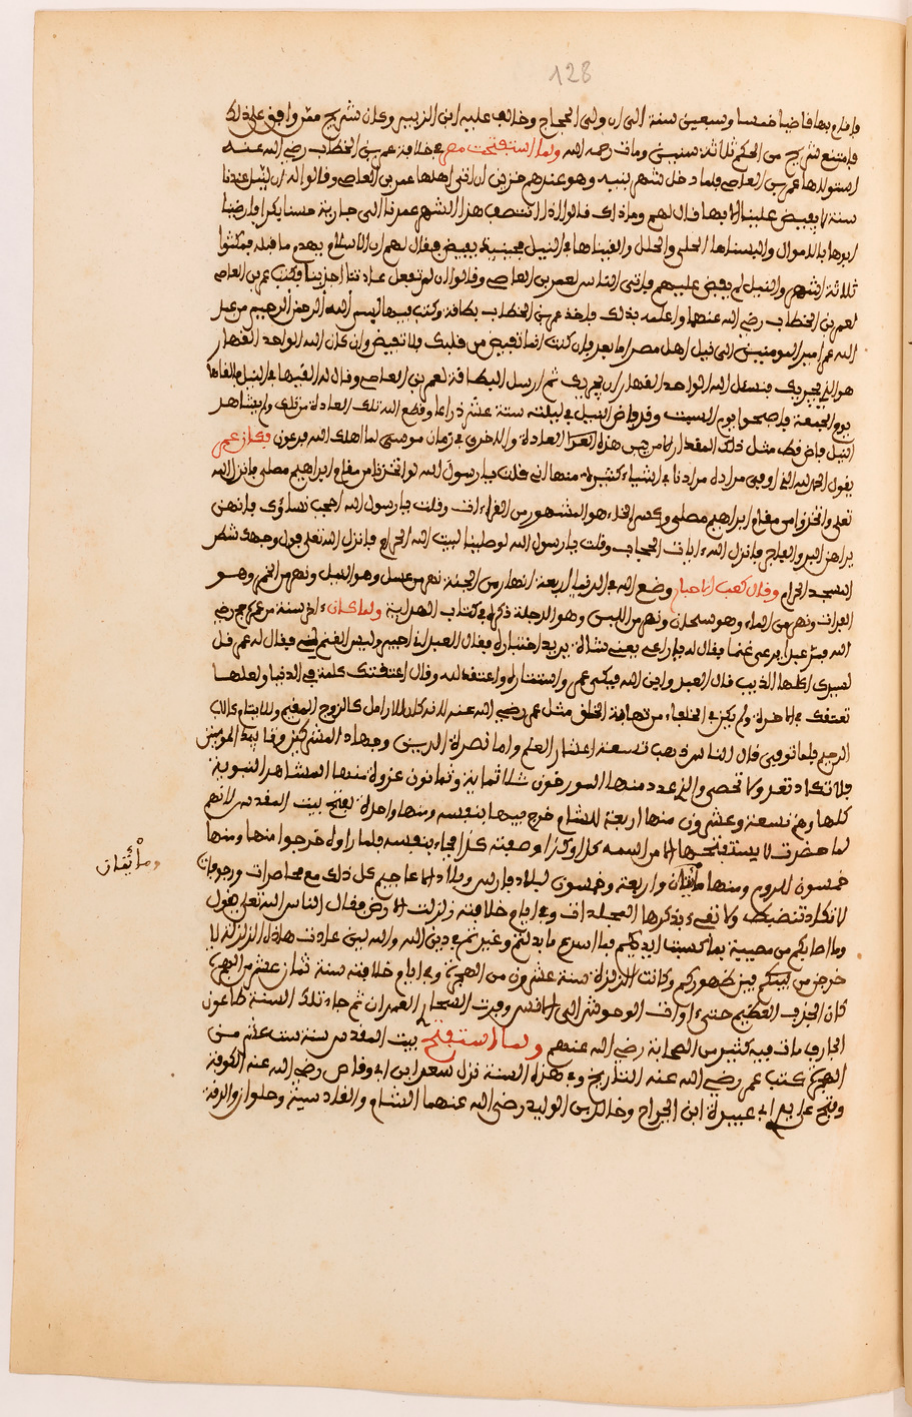 128
فاقام بها قاضيا خمسا وسبعين سنة الى ان ولى الحجاج وخالف عليه ابن الزبير وكان شريح ممن وافق على ذلك
فامتنع شريح من الحكم ثلاثة سنين ومات رحمه الله ولما استفتحت مصر في خلافة عمر بن الخطاب رضي الله عنه
استولاها عمر بن العاصي فلما دخل شهر وهو عندهم اتى اهلها عمر بن العاصي وقالوا له ان لنيل عندنا
سنة لا يفيض علينا الا بها فقال لهم وما ذاك قالوا اذا انتصف هذا الشهر عمدنا الى جارية حسنا بكرا وارضينا
ابوها بالاموال والبسناها الحلي والحلل والقيناها في النيل فحينئذ يفيض فقال لهم ان الاسلام يهدم ما قبله فمكثوا
ثلاثة اشهر والنيل لم يفض عليهم فاتى الناس لعمر بن العاصي وقالوا ان لم تفعل عادتنا فكتب عمر بن العاصي
لعمر بن الخطاب رضي الله عنهما واعلمه بذلك فاخذ عمر بن الخطاب بطاقة وكتب فيها بسم الله الرحمن الرحيم من عبد
الله عمر امير المومنين الى نيل اهل مصر اما بعد فان كنت انما تفيض من قبلك فلا تفيض وان كان الله الواحد القهار
هو الذي يجريك فنسئل الله الواحد القهار ان يجريك ثم ارسل البطاقة لعمر بن العاصي وقال له القيها في النيل فالقاها
يوم الجمعة فاصبحوا يوم السبت وقد فاض النيل في ليلته ستة عشر ذراعا وقطع الله تلك العادة
النيل فاض قط مثل ذلك المقدار الا مرتين هذه المرة والاخرى في زمان موسى لما اهلك الله فرعون وكان عمر
يقول الحمد لله الذي اوفى مراده مرادنا في اشياء كثيرة منها اني قلت يا رسول الله لو اتخذنا مقام ابراهيم مصلى فانزل الله
تعلى واتخذوا من مقام ابراهيم مصلى وكسر الخاء هو المشهور من القراءات وقلت يا رسول الله احجب نساؤك فانهن
يراهن البر والفاجر فانزل الله ءايات الحجاب وقلت يا رسول الله لو صلينا لبيت الله الحرام فانزل الله تعلى فول وجهك شطر
المسجد الحرام وقال كعب الاحبار وضع الله في الدنيا اربعة انهار من الجنة نهر من عسل وهو النيل ونهر من الخمر وهو
الفرات ونهر من الماء وهو سيحان ونهر من اللبن وهو الدجلة ذكره في كتاب الهداية ولما كان ءاخر سنة من عمره رضي
الله عنه عبدا يرعى غنما فقال له يا راعي بعني شاة يريد اختباره فقال العبد لصاحبه وليس الغنم لي فقال له عمر قل
لسيدي اكلها الذيب قال العبد واين الله فبكى عمر واشتراه واعتقه لله وقال اعتقتك كلمة في الدنيا ولعلها
تعتقك في الاخرة ولم يكن في الخلفاء من الخلق مثل عمر رضي الله عنه لانه كان للارامل كالزوج المقيم وللايتام كالاب
الرحيم فلما توفي قال الناس ذهب تسعة اعشار العلم واما نصرة الدين وجهاد المشركين
فلا تكاد تعد ولا تحصى والذي عدد منها المورخون ثلاثماية وثمانون غزوة منها المشاهد النبوية
كلها وهم تسعة وعشرون منها اربعة للشام خرج فيها بنفسه ومنها واحدة لفتح بيت المقدس لانهم
لما حضرت لا يستفتحها الا من اسمه كذا وكذا وصفته كذا فجاء بنفسه فلما راوه خرجوا منها ومنها
خمسون للروم ومنها مائتان واربعة وخمسون لبلاد فارس وبلاد الاعاجم كل ذلك مع محاصرات ورجوعات
ومائتان
لا تكاد تنضبط ولا تفي بذكرها المجلدات وفي ايام خلافته زلزلت الارض فقال الناس الله تعلى يقول
وما اصابكم من مصيبة بما كسبت ايديكم فما اسرع ما بدلتم وغيرتم في دين الله والله لئن عادت هاذه الزلزلة لا
خرجن من بينكم وكانت الزلزلة سنة عشرون من الهجرة وفي ايام خلافته سنة ثمان عشر من الهجرة
كان الجدب العظيم حتى اوت الوحوش الى الانس وفرت الى العمران ثم جاء تلك السنة طاعون
الجارف مات فيه كثير من الصحابة رضي الله عنهم ولما استفتح بيت المقدس سنة ست عشر من
الهجرة كتب عمر رضي الله عنه التاريخ وفي هذه السنة نزل سعد ابن ابي وقاص رضي الله عنه الكوفة
وفتح على يد ابي عبيدة ابن الجراح وخالد بن الوليد رضي الله عنهما الشام والقادسية وحلوان والرقة